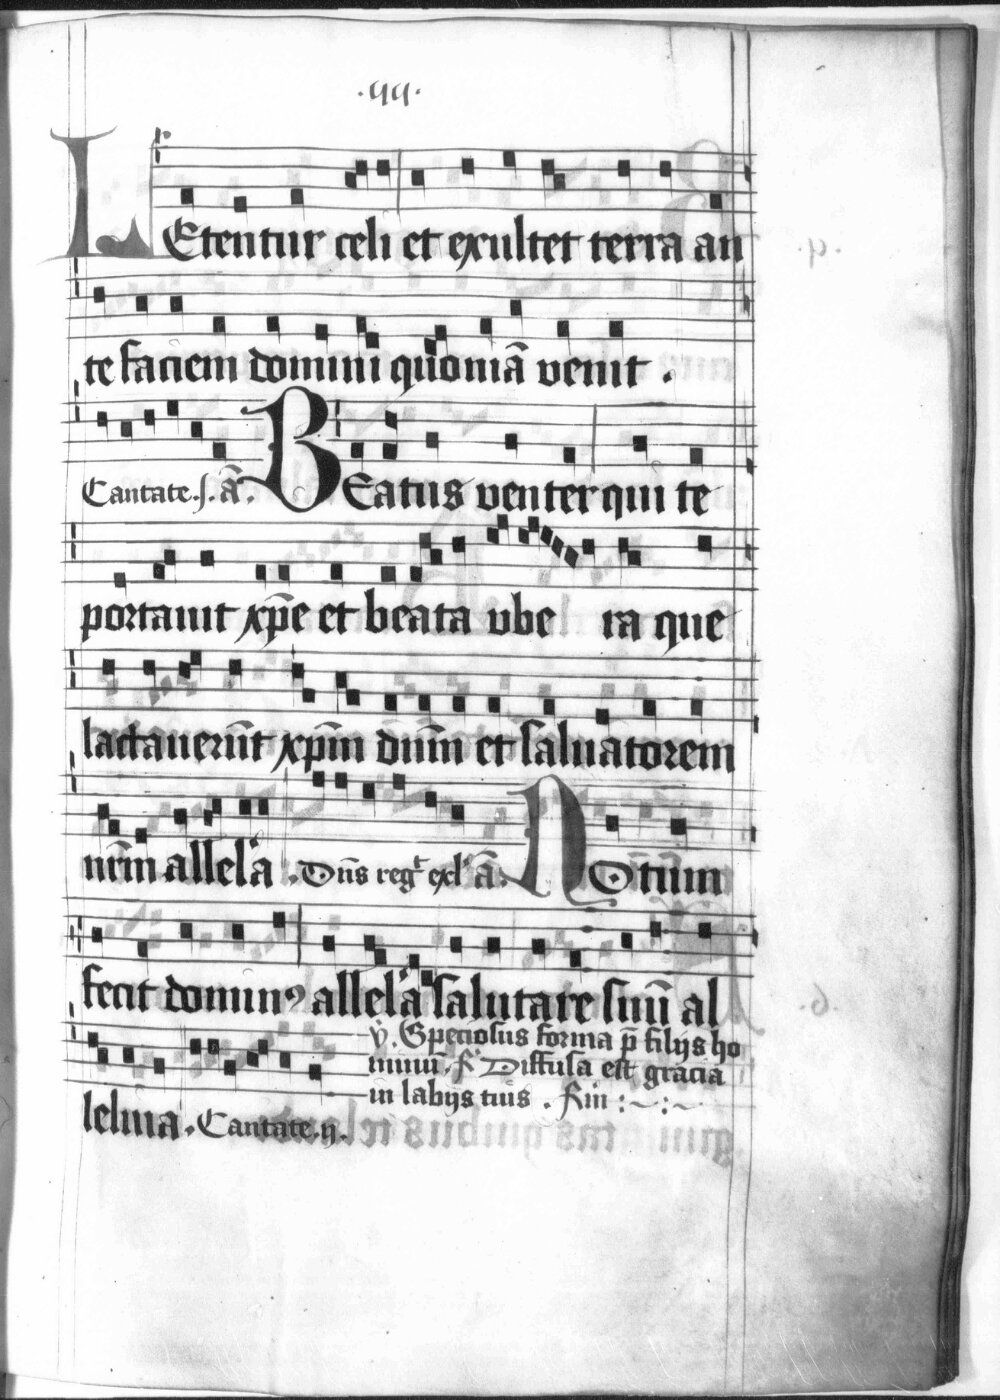 .99.
LEtentur celi et exultet terra an
te faciem domini quoniā venit .
Cantate.ſ.ā. BEatus venter qui te
portauit xp̄e et beata vbe ra que
lactauerūt xp̄m dn̄m et saluatorem
nr̄m allel'a . Dn̄s reg͛ exl' ā. NOtum
fecit domin⁹ allel'a salutare suū al
v̇. Speciosus forma p̄ filijs ho
minū. R̛ Diffusa est gracia
leluia. Cantate.ij. in labijs tuis .